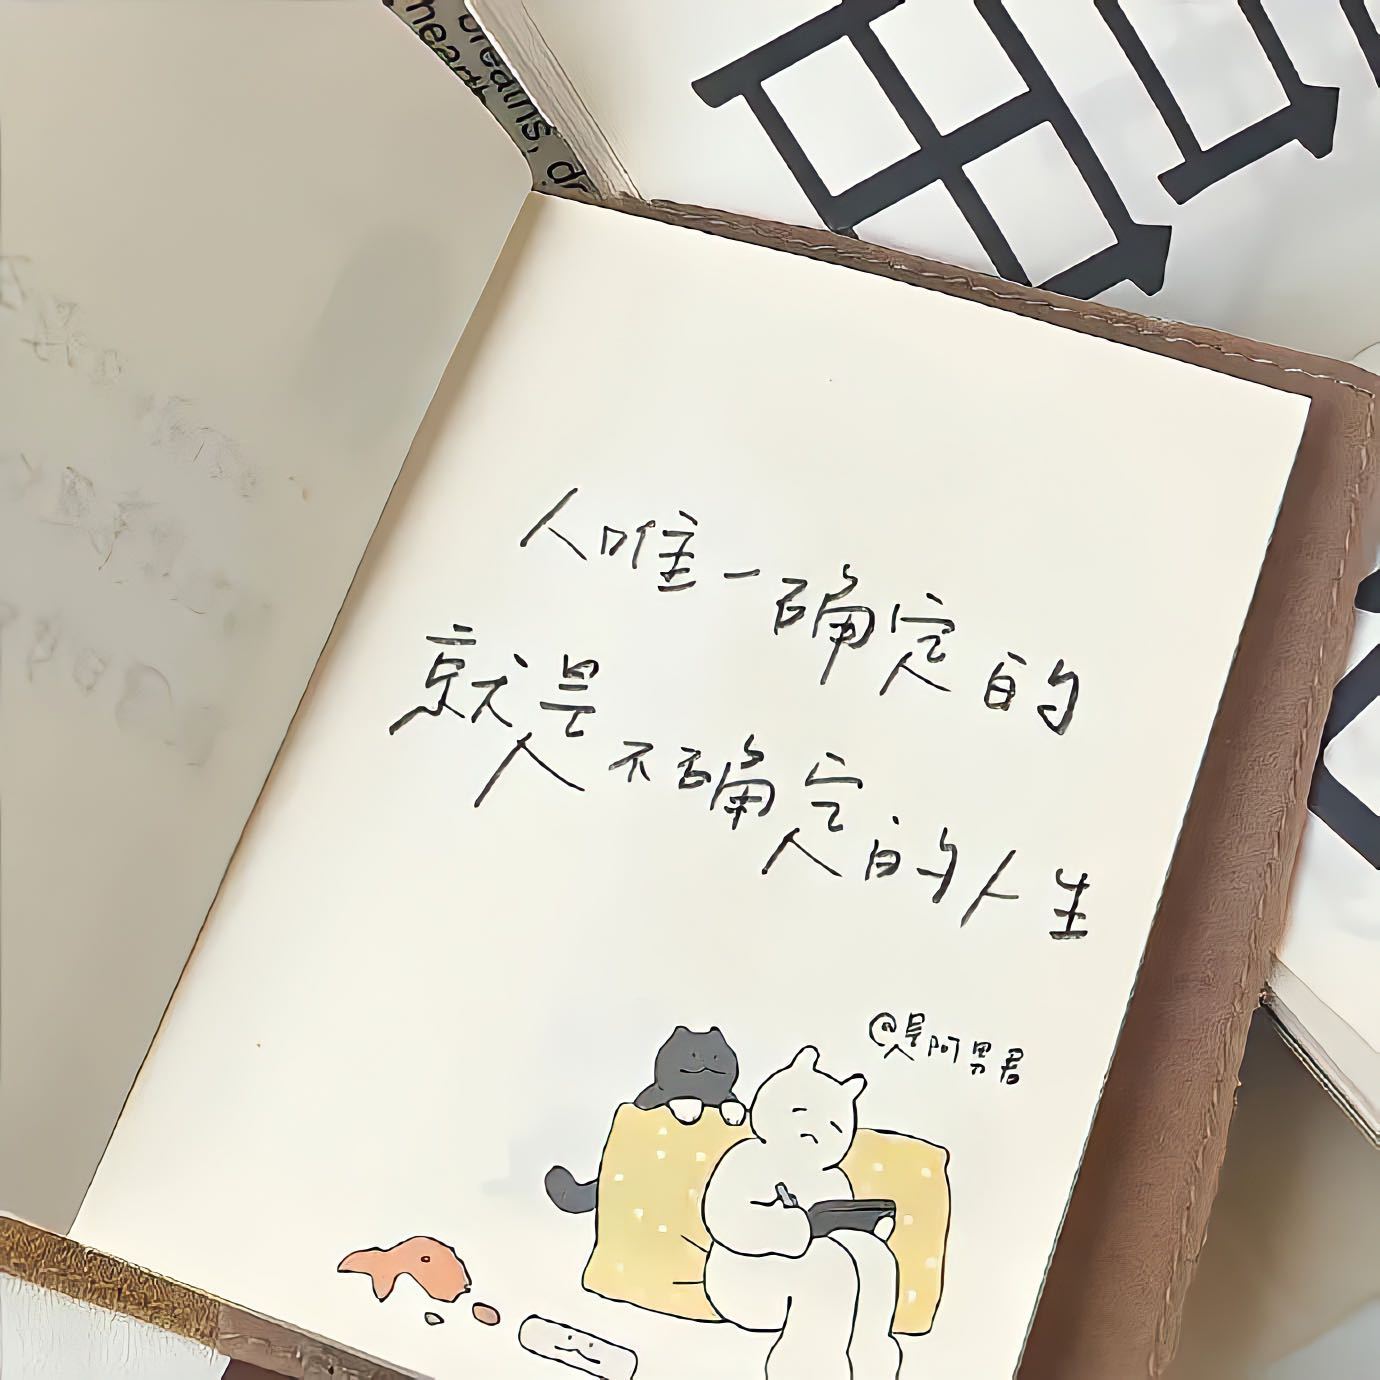 brains,
heart
人唯一确定的
就是不确定的人生
@是阿男君